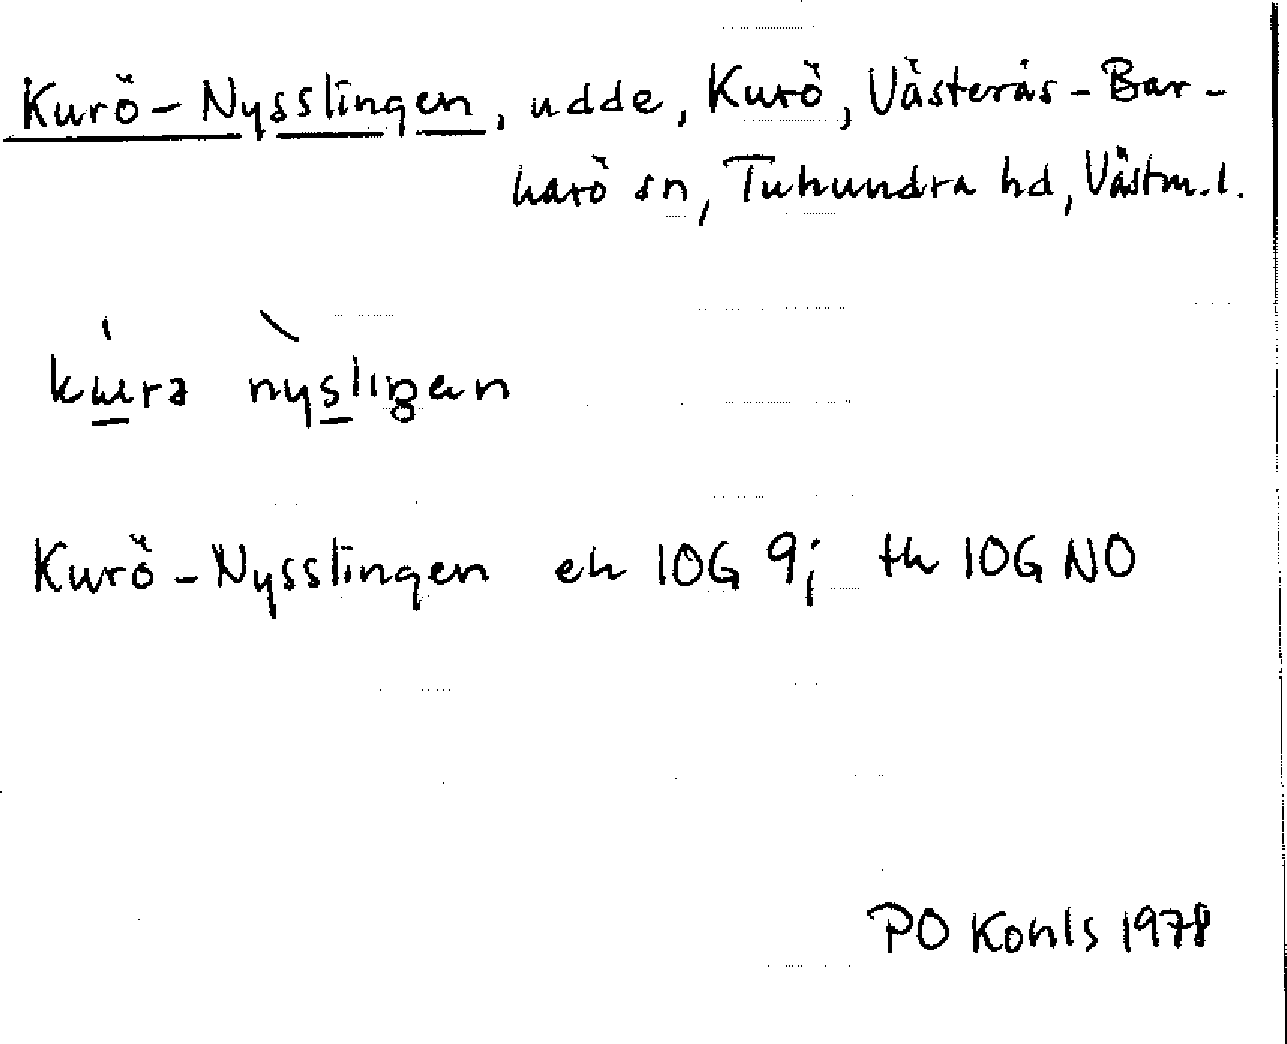 Kurö-Nysslingen, udde, Kurö, Västerås-Bar-
karö sn, Tuhundra hd, Västm.l.
Kurö-Nysslingen ek 10G 9j tk 10G NO
PO Kohls 1978